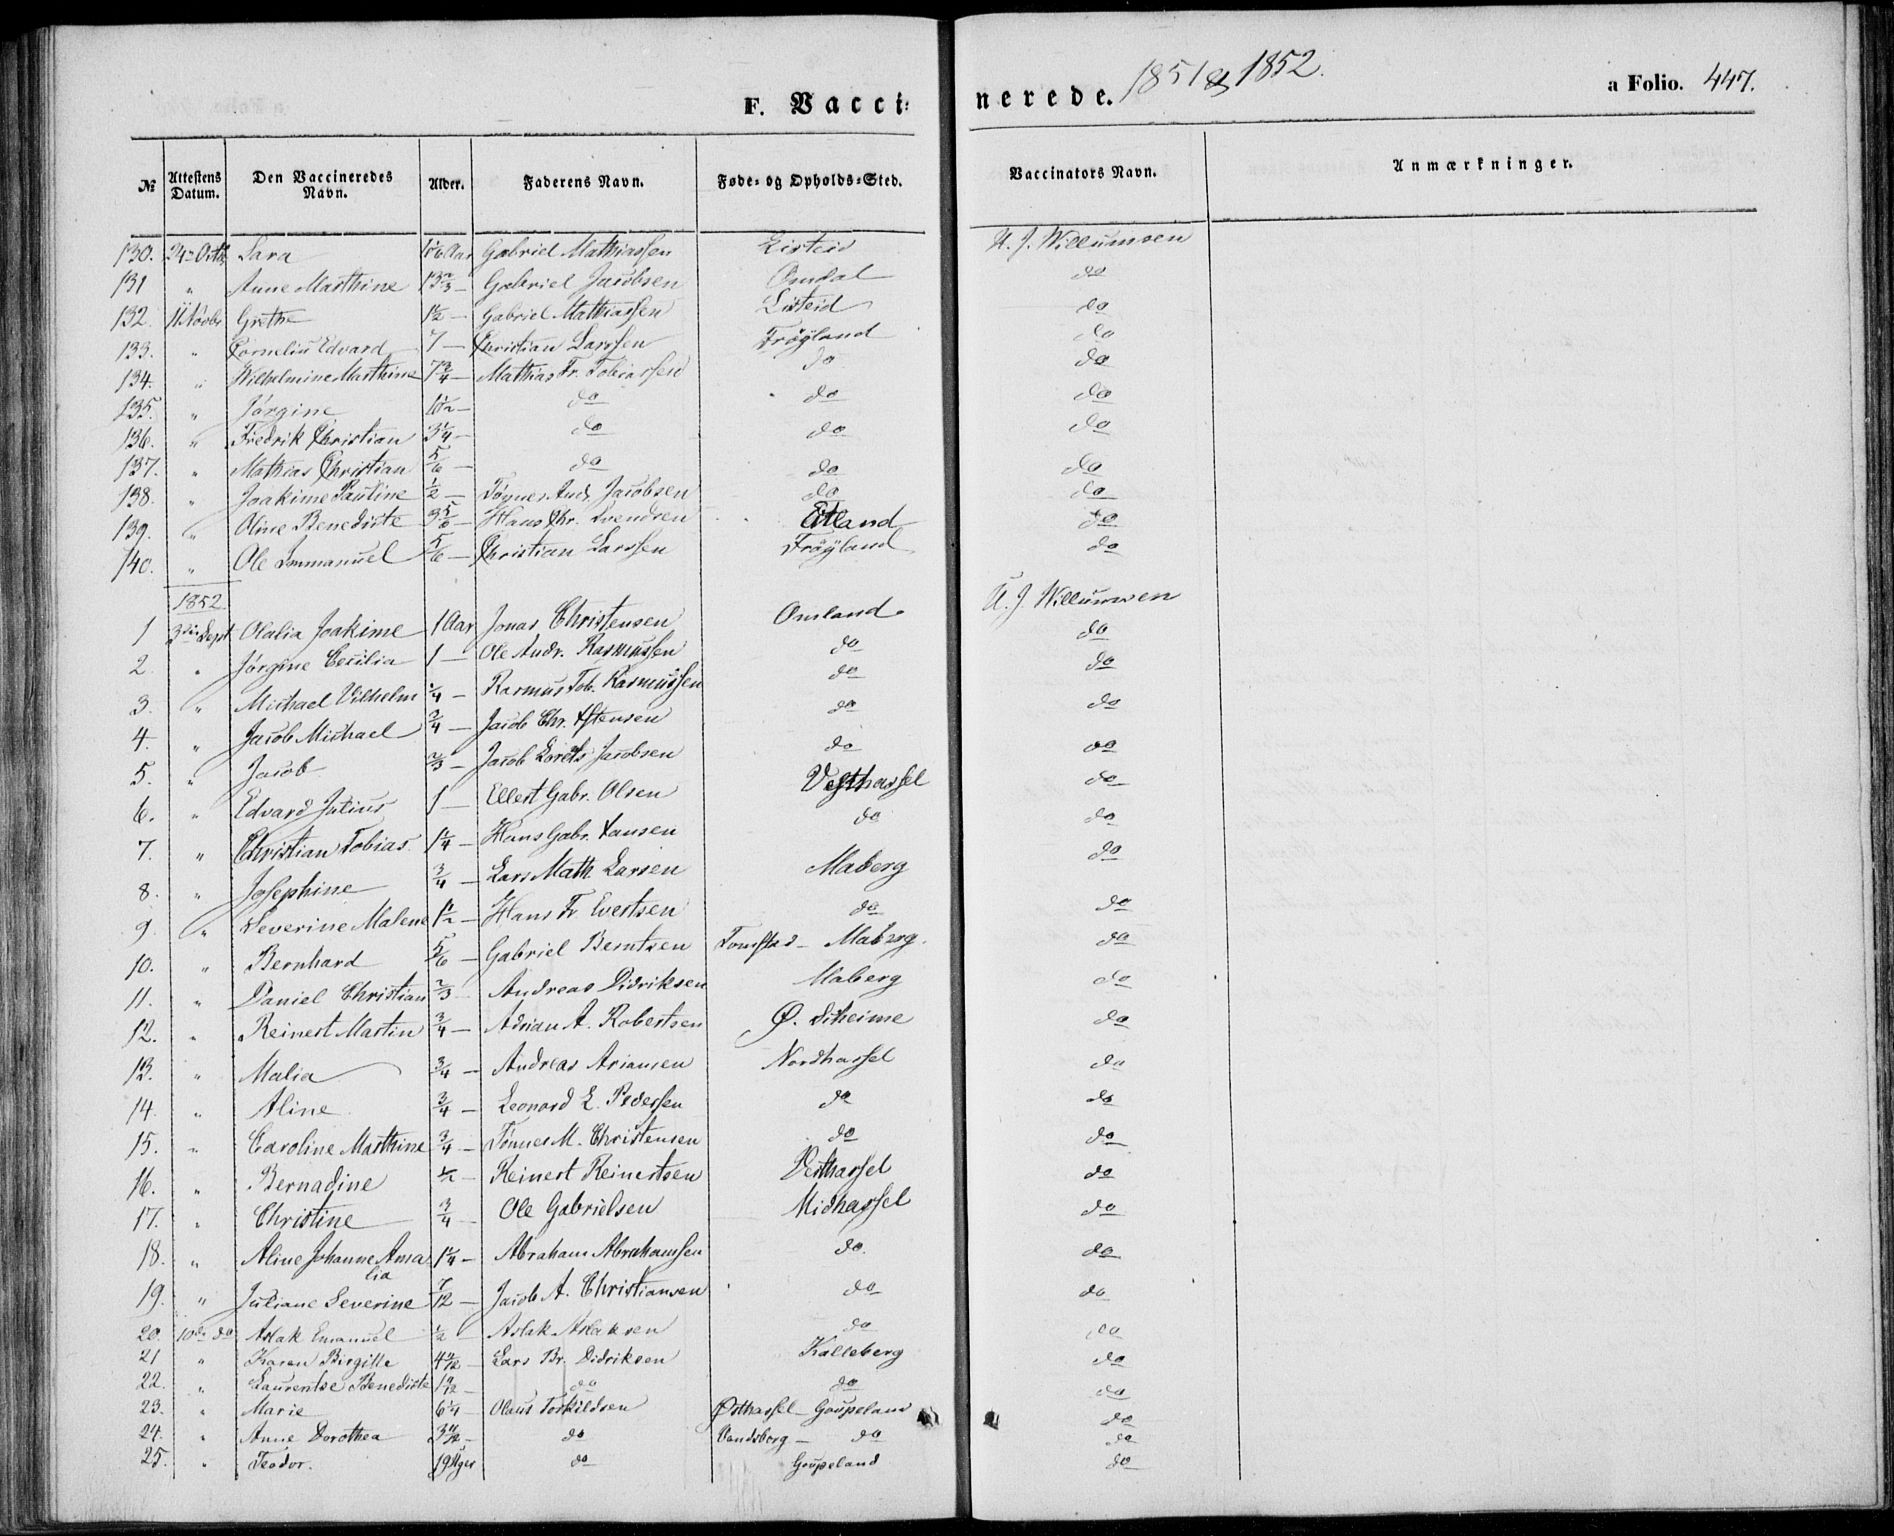 F. Vaccinerede. 1851 & 1852. a Folio. 447.
№ | Attestens Datum. | Den Vaccineredes Navn. | Alder. | Faderens Navn. | Føde- og Opholds-Sted. | Vaccinators Navn. | Anmærkninger.
130. Sara Gabriel Mathiassen Listeid U. J. Willumsen
131 " Anne Marthine 13 2/3 — Gabriel Jacobsen Omdal do
132. 11 Novbr Grethe 1 1/2 — Gabriel Mathiassen Listeid do
133. " Cornelius Edvard 7 — Christian Larssen Frøyland do
134. " Wilhelmine Marthine 7 3/4 — Mathias Fr. Tobiassen do do
135. " Jørgine do do do
136. " Fredrik Christian 3 1/4 — do do do
137. " Mathias Christian 5/6 — do do do
138. " Joakime Pauline 1/2 — Tønnes Andr. Jacobsen do do
139. " Oline Benedicte 3 5/6 — Hans Chr. Svendsen Etland do
140. " Ole Emmanuel 5/6 — Christian Larssen Frøyland do
1852.
1 3die Sept. Olalia Joakime 1 Aar Jonas Christensen Omland U. J. Willumsen
2. " Jørgine Cecilia 1 — Ole Andr. Rasmussen do do
3. " Michael Vilhelm 1/4 — Rasmus Tob. Rasmussen do do
4. " Jacob Michael 3/4 — Jacob Chr. do do
5. " Jacob 2/3 — Jacob Jacobsen do do
6. " Edvard Julius 1 — Ellert Gabr. Olsen Vesthassel do
7. " Christian Tobias 1 1/4 — Hans Gabr. Hansen do do
8. " Josephine 3/4 — Lars Math. Larsen Maberg do
9. " Severine Malene 1 1/2 — Hans Fr. Evertsen do do
10. " Bernhard 5/6 — Gabriel Berntsen Tomstad — Maberg. do
11. " Daniel Christian 2/3 — Andreas Didriksen Maberg do
12. " Reinert Martin 3/4 — Adrian A. Robertsen Ø. do
13. " Malia 3/4 — Andreas Ariansen Nordhassel do
14. " Aline 3/4 — Leonard L. Pedersen do do
15. " Caroline Marthine 3/4 — Tønnes M. Christensen do do
16. " Bernadine 1/2 — Reinert Reinertsen Vesthassel do
17. " Christine 3/4 — Ole Gabrielsen Midhassel do
18. " Aline Johanne Amalia 1 1/4 — Abraham Abrahamsen do. do
19. " Juliane Severine 7/12 — Jacob A. Christiansen do do
20. 10de do Aslak Emanuel 1/2 — Aslak Aslaksen do do
21 " Karen Birgitte Lars Br. Didriksen Kalleberg do
22. " Laurentse Benedicte do do do
23. " Marie 6 1/4 — Olaus Torkildsen Østhassel — Goupeland do
24. " Anne Dorothea do Vandsborg — do do
25. " Teodor. 19 Uger do Goupeland do